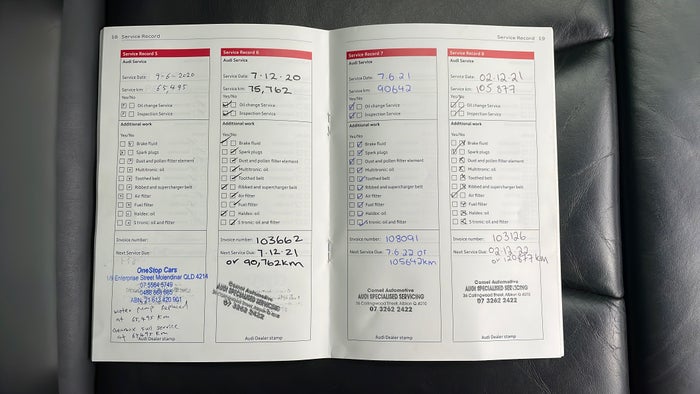 18 Service Record
Service Record 5
Audi Service
Service Date: 9-6-2020
Service km: 65,495
Yes/No
Oil change Service
Inspection Service
Additional work
Yes/No
Brake fluid
Spark plugs
Dust and pollen filter element
Multitronic: oil
Toothed belt
Ribbed and supercharger belt
Air filter
Fuel filter
Haldex: oil
S tronic: oil and filter
Invoice number:
Next Service Due:
OneStop Cars
Enterprise Street Molendinar QLD 4214
07 5564 5749
ABN: 21 613 420 901
water pump replaced
at 65,495 km
Gearbox service
at 65,495 km
Audi Dealer stamp
Service Record 6
Audi Service
Service Date: 7.12.20
Service km: 75,762
Yes/No
Oil change Service
Inspection Service
Additional work
Yes/No
Brake fluid
Spark plugs
Dust and pollen filter element
Multitronic: oil
Toothed belt
Ribbed and supercharger belt
Air filter
Fuel filter
Haldex: oil
S tronic: oil and filter
Invoice number: 103662
Next Service Due: 7.12.21
or 90,762km
Comet Automotive
AUDI SPECIALISED SERVICING
07 3262 2422
Audi Dealer stamp
Service Record 19
Service Record 7
Audi Service
Service Date: 7.6.21
Service km: 90642
Yes/No
Oil change Service
Inspection Service
Additional work
Yes/No
Brake fluid
Spark plugs
Dust and pollen filter element
Multitronic: oil
Toothed belt
Ribbed and supercharger belt
Air filter
Fuel filter
Haldex: oil
S tronic: oil and filter
Invoice number: 108091
Next Service Due: 7.6.22 or
105642km
Comet Automotive
AUDI SPECIALISED SERVICING
36 Collingwood Street Albion Q 4010
07 3262 2422
Audi Dealer stamp
Service Record 8
Audi Service
Service Date: 02.12.21
Service km: 105877
Yes/No
Oil change Service
Inspection Service
Additional work
Yes/No
Brake fluid
Spark plugs
Dust and pollen filter element
Multitronic: oil
Toothed belt
Ribbed and supercharger belt
Air filter
Fuel filter
Haldex: oil
S tronic: oil and filter
Invoice number: 103126
Next Service Due: 02.12.22
or 120877km
Comet Automotive
AUDI SPECIALISED SERVICING
36 Collingwood Street Albion Q 4010
07 3262 2422
Audi Dealer stamp